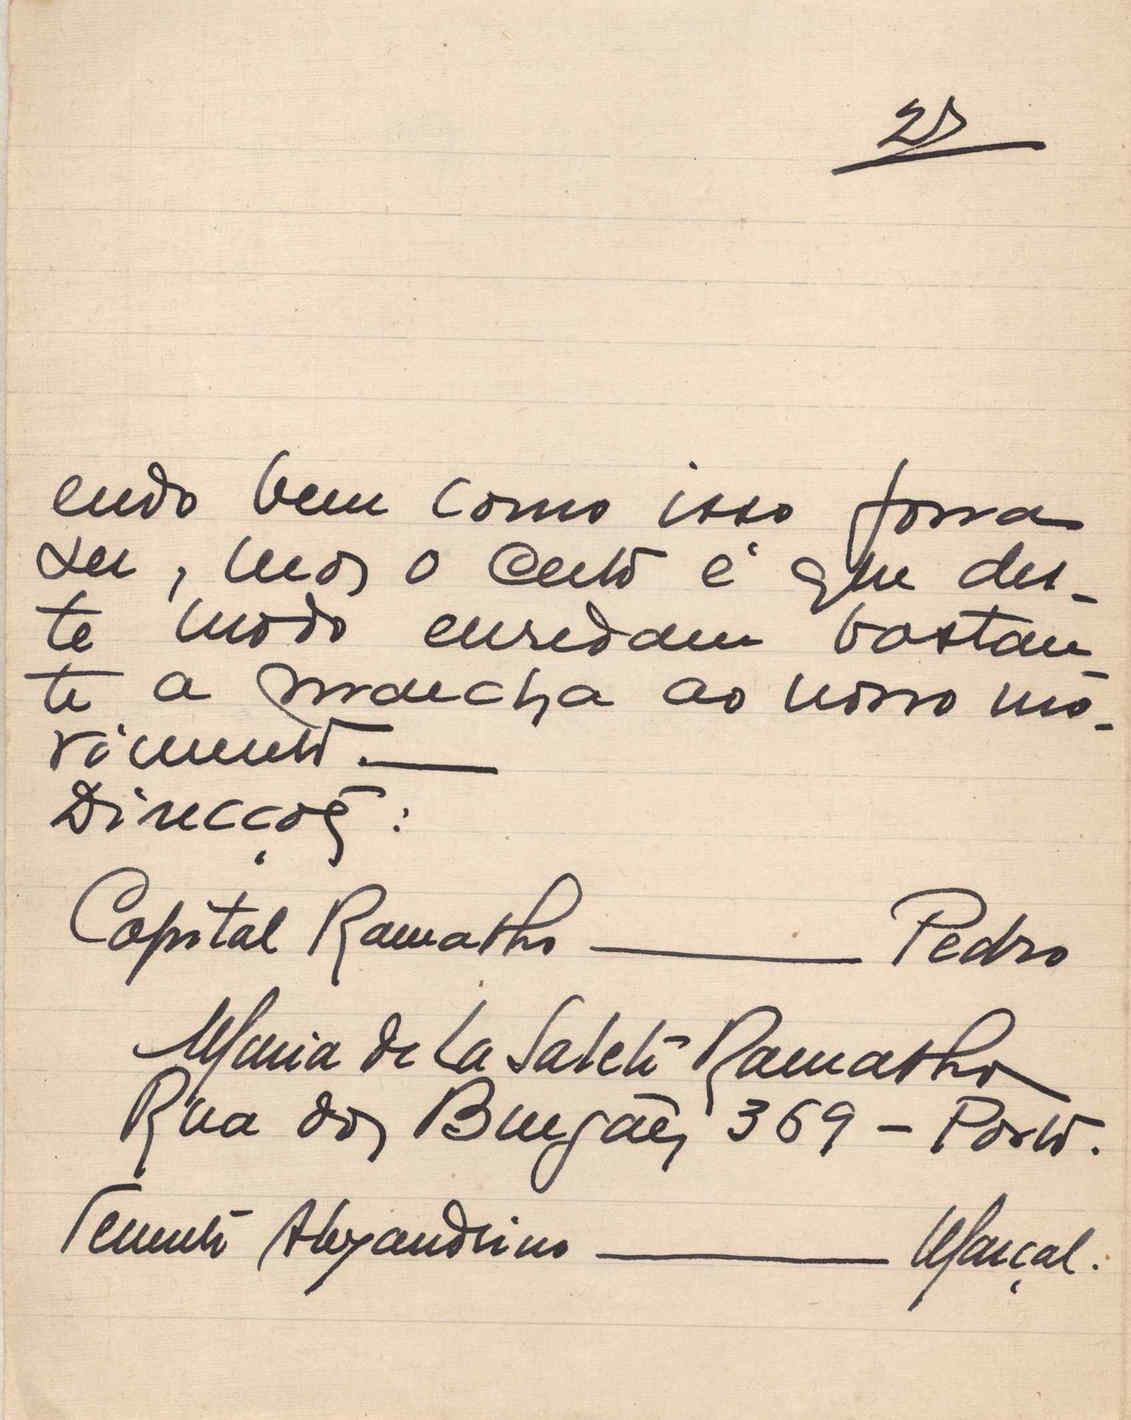 endo bem como isso possa
ser, mas o certo é que des-
te modo enredam bastan-
te a marcha ao nosso mo-
vimento.
Direcções:
Capital Ramalho — Pedro
Maria de La Salete Ramalho
Rua dos Burgães 369 - Porto.
Tenente Alexandrino — Marçal.